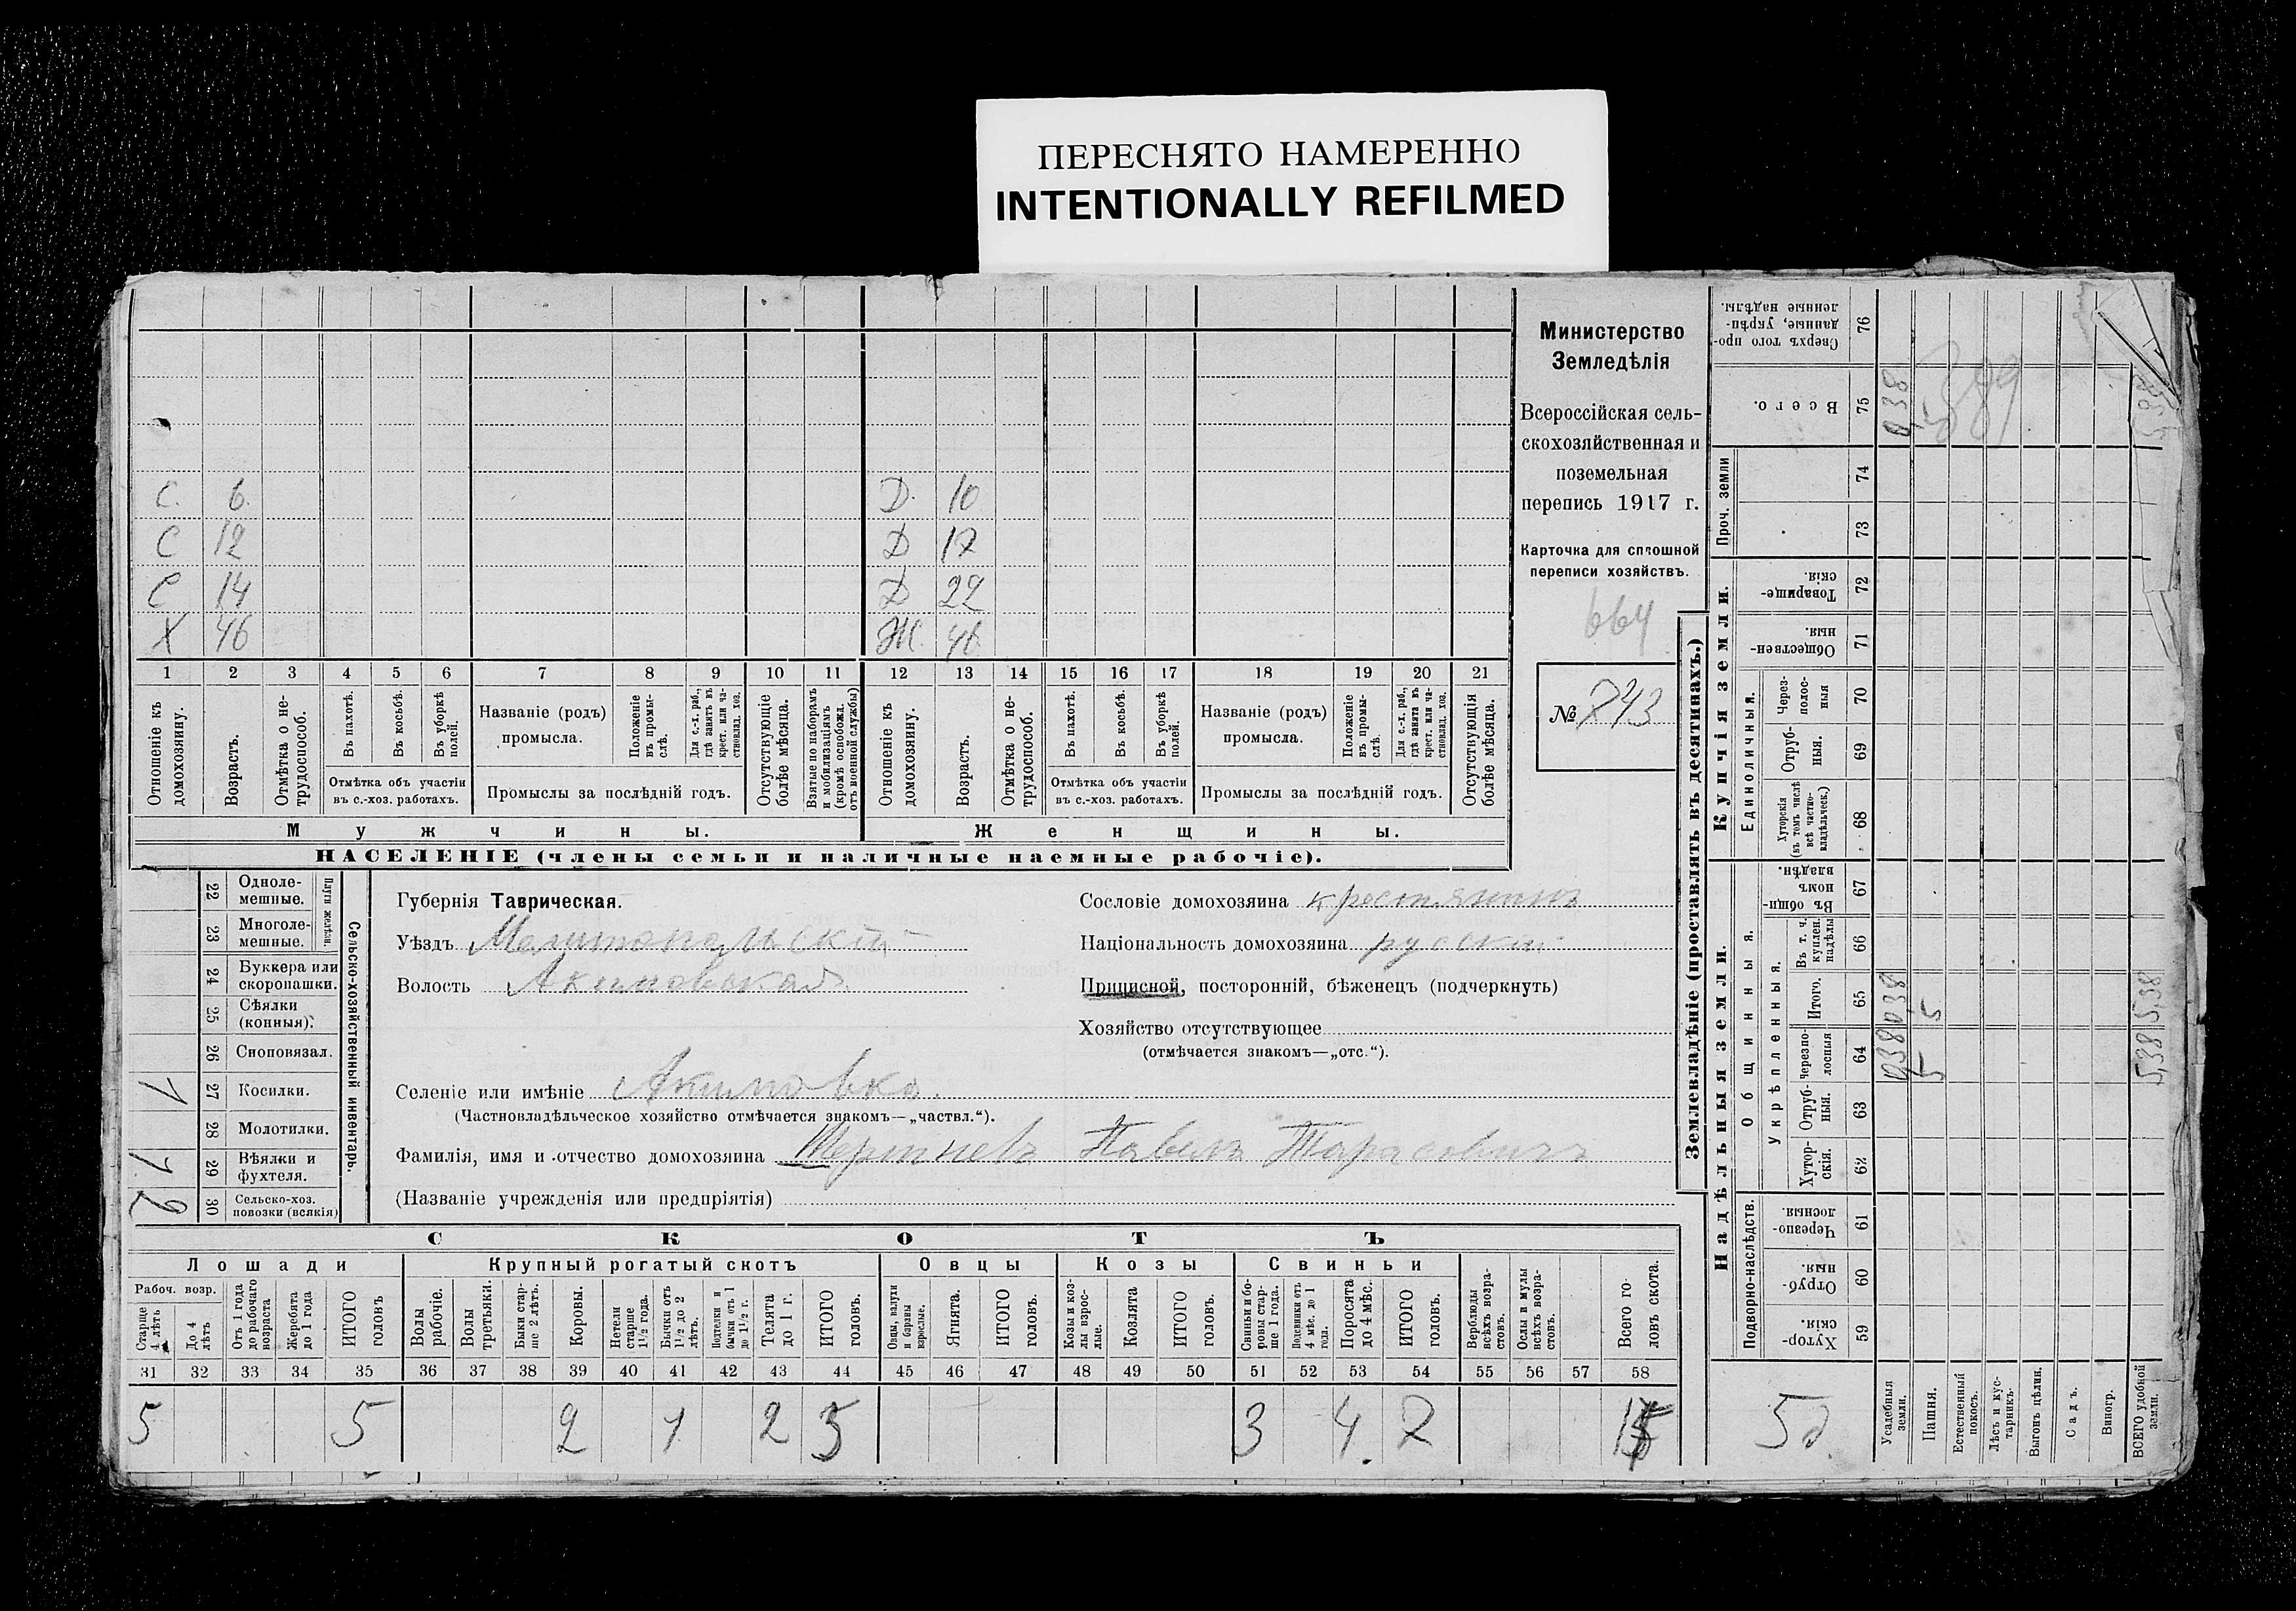 ПЕРЕСНЯТО НАМЕРЕННО
INTENTIONALLY REFILMED
Министерство
Земледѣлія
Всероссійская сель-
скохозяйственная и
поземельная
перепись 1917 г.
Карточка для сплошной
переписи хозяйствъ.
664
№ 743
С. 6 Д. 10
С 12 Д 17
С 14 Д 22
Х 46 Ж. 46
1 2 3 4 5 6 7 8 9 10 11 12 13 14 15 16 17 18 19 20 21
Отношеніе къ домохозяину.
Возрастъ.
Отмѣтка о не-трудоспособ.
Въ пахотѣ.
Въ косьбѣ.
Въ уборкѣ полей.
Отмѣтка объ участіи
въ с.-хоз. работахъ.
Названіе (родъ)
промысла.
Положеніе въ промы-слѣ.
Для с.-х. раб., гдѣ занятъ въ крест. или ча-стновлад. хоз.
Промыслы за послѣдній годъ.
Отсутствующіе болѣе мѣсяца.
Взятые по наборамъ и мобилизаціямъ (кромѣ освобожд. отъ военной службы)
Отношеніе къ домохозяину.
Возрастъ.
Отмѣтка о не-трудоспособ.
Въ пахотѣ.
Въ косьбѣ.
Въ уборкѣ полей.
Отмѣтка объ участіи
въ с.-хоз. работахъ.
Названіе (родъ)
промысла.
Положеніе въ промы-слѣ.
Для с.-х. раб., гдѣ занята въ крест. или ча-стновлад. хоз.
Промыслы за послѣдній годъ.
Отсутствующія болѣе мѣсяца.
Мужчины. Женщины.
НАСЕЛЕНІЕ (члены семьи и наличные наемные рабочіе).
Сельско-хозяйственный инвентарь.
Плуги желѣзн.
22 Одноле-мешные.
23 Многоле-мешные.
24 Буккера или скоропашки.
25 Сѣялки (конныя).
26 Сноповязал.
1 27 Косилки.
28 Молотилки.
1 29 Вѣялки и фухтеля.
2 30 Сельско-хоз. повозки (всякія)
Губернія Таврическая.
Уѣздъ Мелитопольскій
Волость Акимовская
Сословіе домохозяина крестьянинъ
Національность домохозяина русскій
Приписной, посторонній, бѣженецъ (подчеркнуть)
Хозяйство отсутствующее
(отмѣчается знакомъ—„отс.“).
Селеніе или имѣніе Акимовка.
(Частновладѣльческое хозяйство отмѣчается знакомъ—„частвл.“).
Фамилія, имя и отчество домохозяина Павелъ Тарасовичъ
(Названіе учрежденія или предпріятія)
СКОТЪ
Лошади Крупный рогатый скотъ Овцы Козы Свиньи
Рабоч. возр.
Старше 4 лѣтъ
До 4 лѣтъ
Отъ 1 года до рабочаго возраста
Жеребята до 1 года
ИТОГО головъ
Волы рабочіе.
Волы третьяки.
Быки стар-ше 2 лѣтъ.
Коровы.
Нетели старше 1½ года.
Бычки отъ 1½ до 2 лѣтъ.
Подтелки и бычки отъ 1 до 1½ г.
Телята до 1 г.
ИТОГО головъ.
Овцы, валухи и бараны взрослые.
Ягнята.
ИТОГО головъ.
Козы и коз-лы взрос-лые.
Козлята
ИТОГО головъ.
Свиньи и бо-ровы стар-ше 1 года.
Подсвинки отъ 4 мѣс. до 1 года.
Поросята до 4 мѣс.
ИТОГО головъ.
Верблюды всѣхъ возра-стовъ.
Ослы и мулы всѣхъ возра-стовъ.
Всего го-ловъ скота.
31 32 33 34 35 36 37 38 39 40 41 42 43 44 45 46 47 48 49 50 51 52 53 54 55 56 57 58
5 5 2 1 2 5 3 4 7
Землевладѣніе (проставлять въ десятинахъ.)
Купчія земли.
Сверхъ того про-данные, укрѣп-ленные надѣлы. 76
Всего. 75 0,38
Проч. земли 74
73
Товарище-скія. 72
Обществен-ныя. 71
Единоличныя.
Через-полос-ныя 70
Отруб-ныя. 69
Хуторскія (въ томъ числѣ всѣ частно-владѣльческ.) 68
Надѣльныя земли.
Общинныя.
Въ общин-номъ владѣн. 67
Укрѣпленныя.
Въ т. ч. куплен. надѣлы 66
Итого. 65 0,38 5 5,38
Черезпо-лосныя 64 0,38 5 5,38
Отруб-ныя. 63
Хутор-скія. 62
Подворно-наслѣдств.
Черезпо-лосныя 61
Отруб-ныя. 60
Хутор-скія. 59
5 д.
Усадебныя земли.
Пашня.
Естественный покосъ.
Лѣсъ и кус-тарникъ.
Выгонъ цѣлин.
Садъ.
Виногр.
ВСЕГО удобной земли.